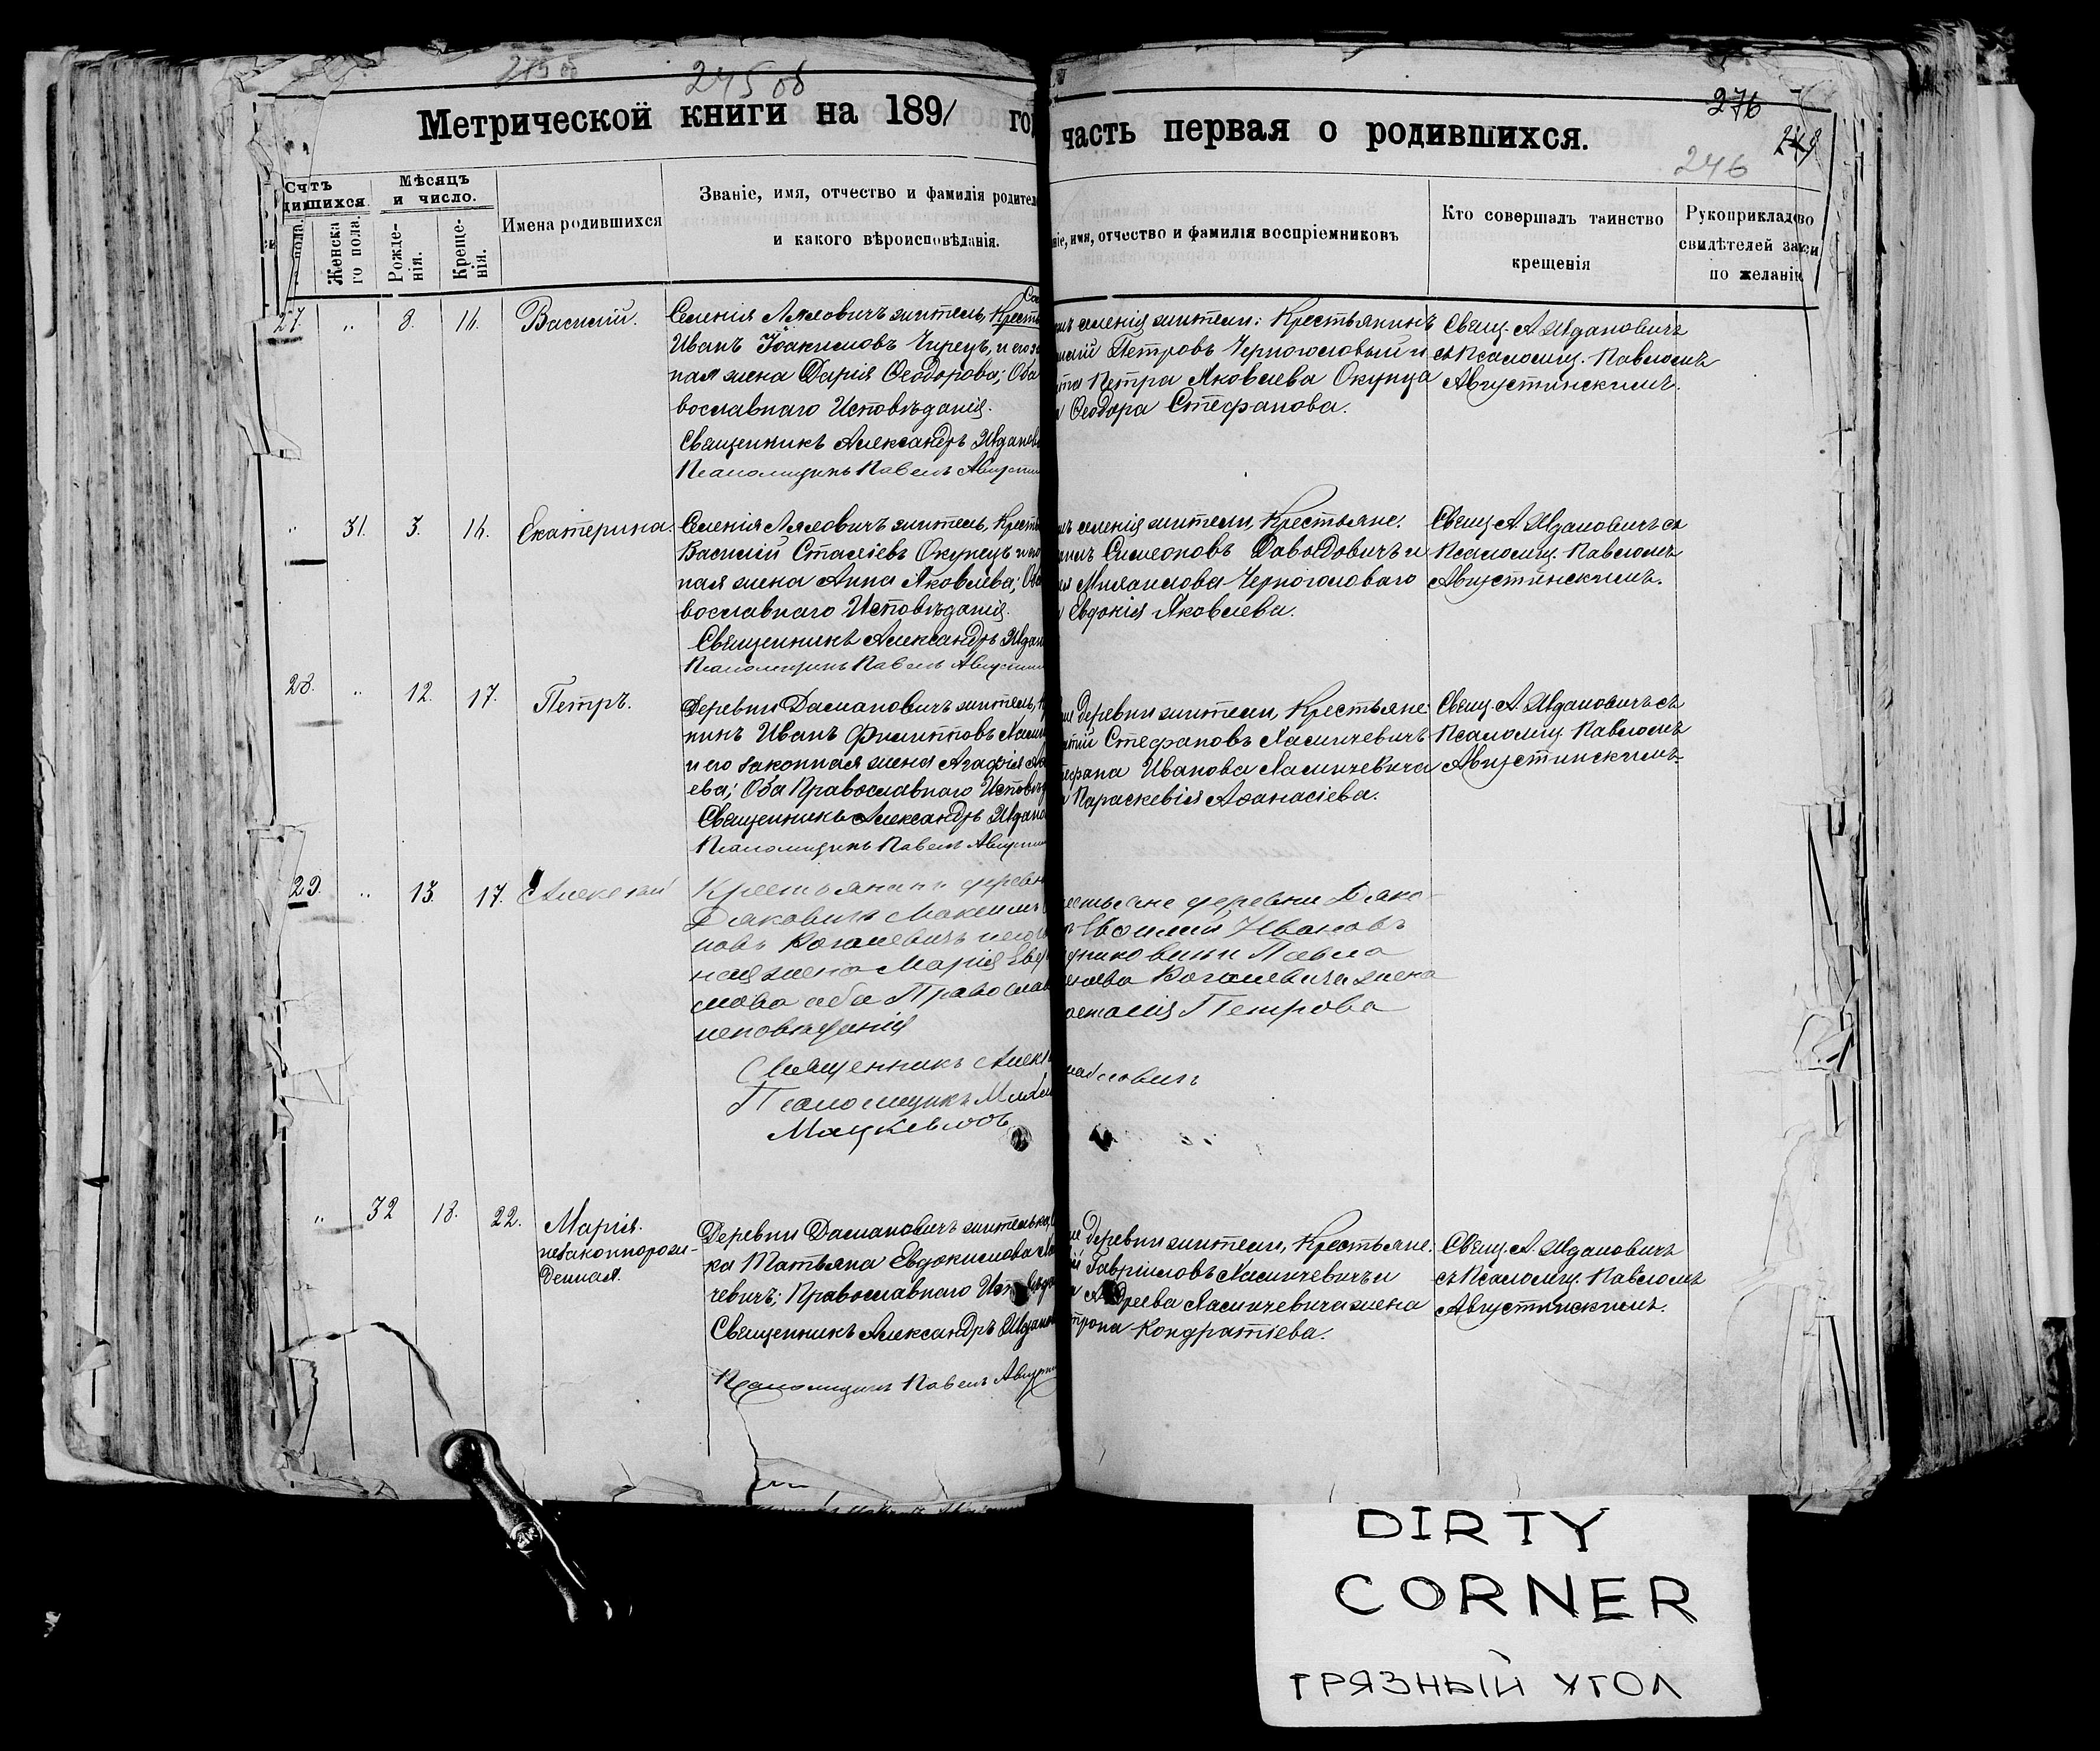 245 об
Метрической книги на 1891 го
часть первая о родившихся.
276
246
Счтъ
дившихся.
пола.
Женска
го пола.
Мѣсяцъ
и число.
Рожде-
нія.
Креще-
нія.
Имена родившихся
Званіе, имя, отчество и фамилія родител
и какого вѣроисповѣданія.
ніе, имя, отчество и фамилія воспріемниковъ
Кто совершалъ таинство
крещенія
Рукоприкладство
свидѣтелей записи
по желанію
27. " 8. 16. Василій.
Селенія Лядовичъ житель, Кресть
Иванъ Іоакимовъ Чирецъ, и его за
ная жена Дарія Ѳеодорова; Оба
вославнаго Исповѣданія.
Священникъ Александръ Жданов
Псаломщикъ Павелъ Августин
селенія жители: Крестьянинъ
Петровъ Черноголовый и
Петра Яковлева Окунца
Ѳеодора Стефанова.
Свящ. А Ждановичъ
съ Псаломщ. Павломъ
Августинскимъ.
" 31. 3. 16. Екатерина.
Селенія Лядовичъ житель, Кресть
Василій Стасіевъ Окунецъ и
ная жена Анна Яковлева; Оба
вославнаго Исповѣданія.
Священникъ Александръ Ждан
Псаломщикъ Павелъ Августин
селенія жители, Крестьяне.
Симеоновъ Давыдовичъ и
Михаилова Черноголоваго
Евдокія Яковлева.
Свящ А. Ждановичъ съ
Псаломщ. Павломъ
Августинскимъ.
28. " 12. 17. Петръ.
Деревни Дамановичъ житель, К
нинъ Иванъ Филипповъ
и его законная жена Агафія
ева; Оба Православнаго Исповѣд
Священникъ Александръ Ждано
Псаломщикъ Павелъ Августин
деревни жители, Крестьяне:
Стефановъ Ласичевичъ
Иванова Ласичевича
Параскевія Аѳанасіева.
Свящ. А Ждановичъ съ
Псаломщ. Павломъ
Августинскимъ.
29. " 13. 17. Алексѣй
Крестьянинъ деревн
Дяковичъ Максимъ
новъ Рогалевичъ и его
ная жена Марія Евд
мова оба Православ
исповѣданія
Священникъ Алек
Псаломщикъ
Мацкевичъ
деревни Дяко-
Ивановъ
Павла
Рогалевича жена
Петрова
" 32 18. 22. Марія.
незаконнорож-
денная.
Деревни Дамановичъ жителька,
ка Татьяна Евдокимова
чевичъ; Православнаго
Священникъ Александръ Жданов
Псаломщикъ Павелъ Августин
деревни жители, Крестьяне.
Гавріиловъ Ласичевичъ и
Андреева Ласичевича жена
Кондратіева.
Свящ. А. Ждановичъ
съ Псаломщ. Павломъ
Августинскимъ.
DIRTY
CORNER
ГРЯЗНЫЙ УГОЛ